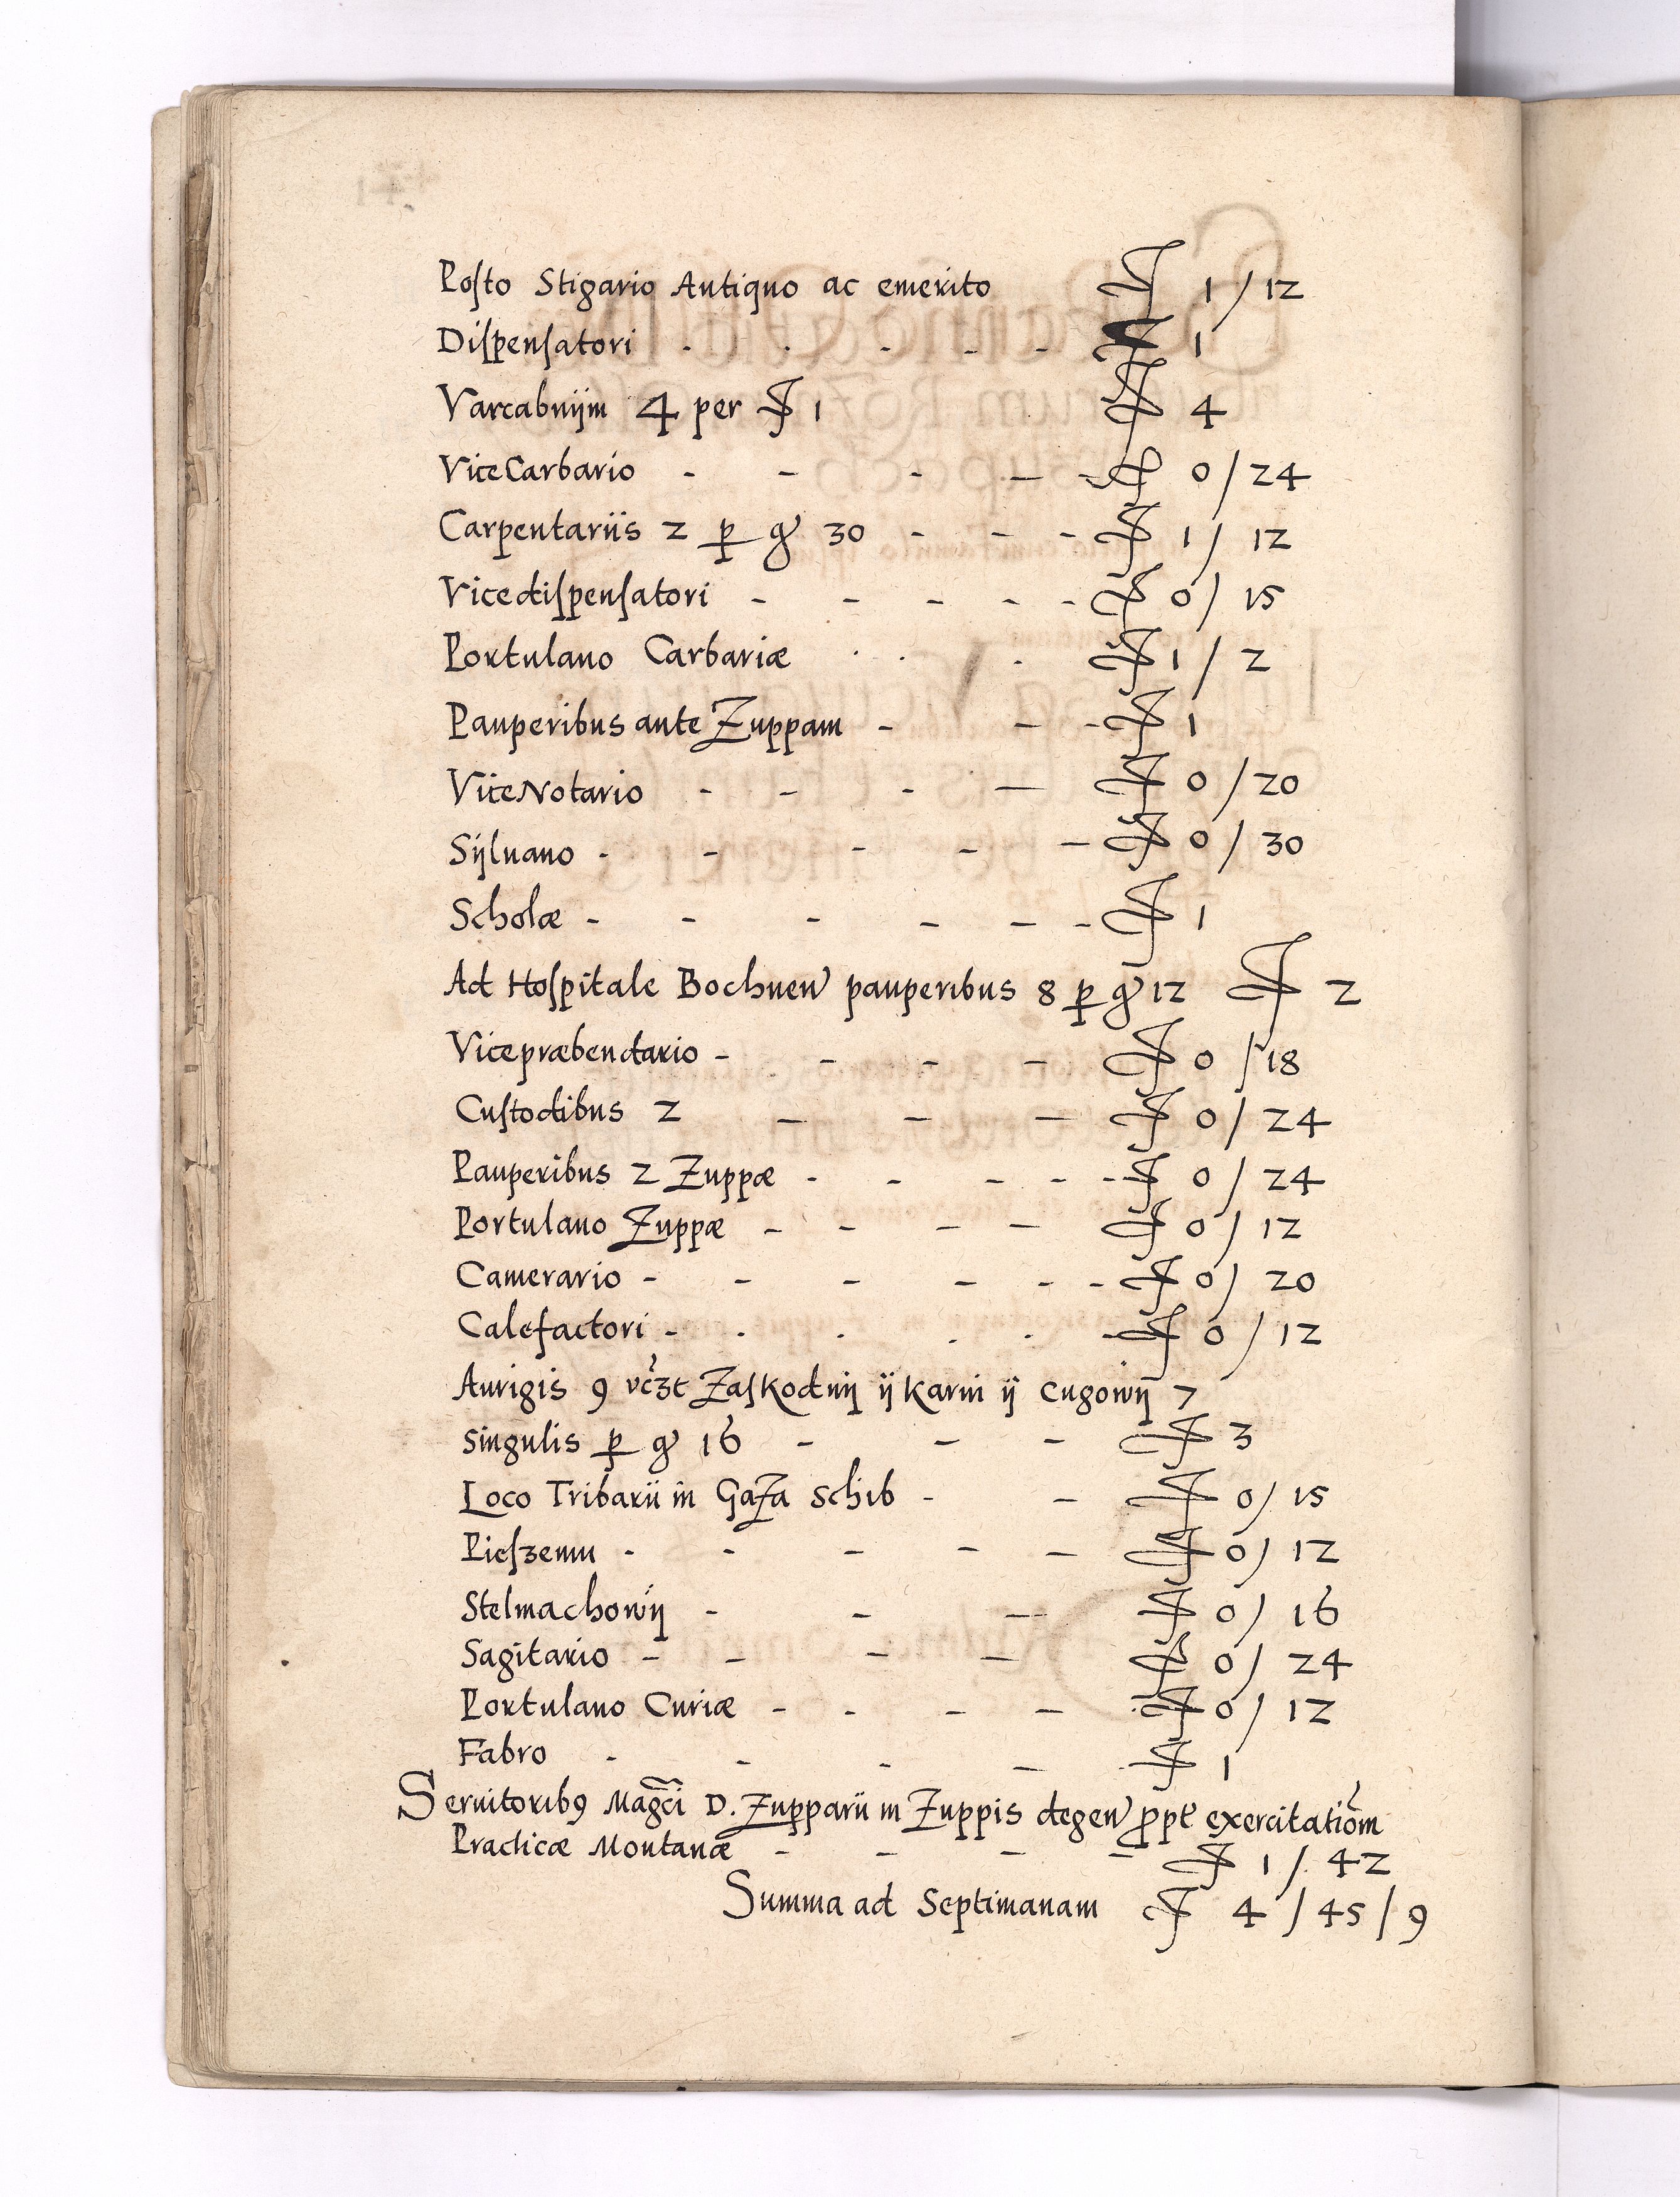 Posto Stigario Antiquo ac emerito ƒ 1 / 12
Dispensatori - - - - - ƒ 1
Varcabnijm 4 per ƒ 1 ƒ 4
ViceCarbario - - - - - ƒ 0 / 24
Carpentariis 2 p g 30 - - - ƒ 1 / 12
Vicedispensatori - - - - - ƒ 0 / 15
Portulano Carbariæ - - - ƒ 1 / 2
Pauperibus ante Zuppam - - - ƒ 1
ViceNotario - - - - ƒ 0 / 20
Sylvano - - - - - ƒ 0 / 30
Scholæ - - - - - - ƒ 1
Ad Hospitale Bochnen pauperibus 8 p g 12 ƒ 2
Vicepræbendario - - - - ƒ 0 / 18
Custodibus 2 - - - ƒ 0 / 24
Pauperibus 2 Zuppæ - - - - - ƒ 0 / 24
Portulano Zuppæ - - - - ƒ 0 / 12
Camerario - - - - - - ƒ 0 / 20
Calefactori - - - - - - ƒ 0 / 12
Aurigis 9 vczt Zaskodnij ij Karni ij Cugowij 7
singulis p g 16 - - - ƒ 3
Loco Tribarii in GaZa schib - - ƒ 0 / 15
Pieszemu - - - - - ƒ 0 / 12
Stelmachowij - - - ƒ 0 / 16
Sagitario - - - - ƒ 0 / 24
Portulano Curiæ - - - - ƒ 0 / 12
Fabro - - - - ƒ 1
Seruitorib9 Magci D. Zupparii in Zuppis degen ppt exercitatiom
Practicæ Montanæ - - - - ƒ 1 / 42
Summa ad Septimanam ƒ 4 / 45 / 9